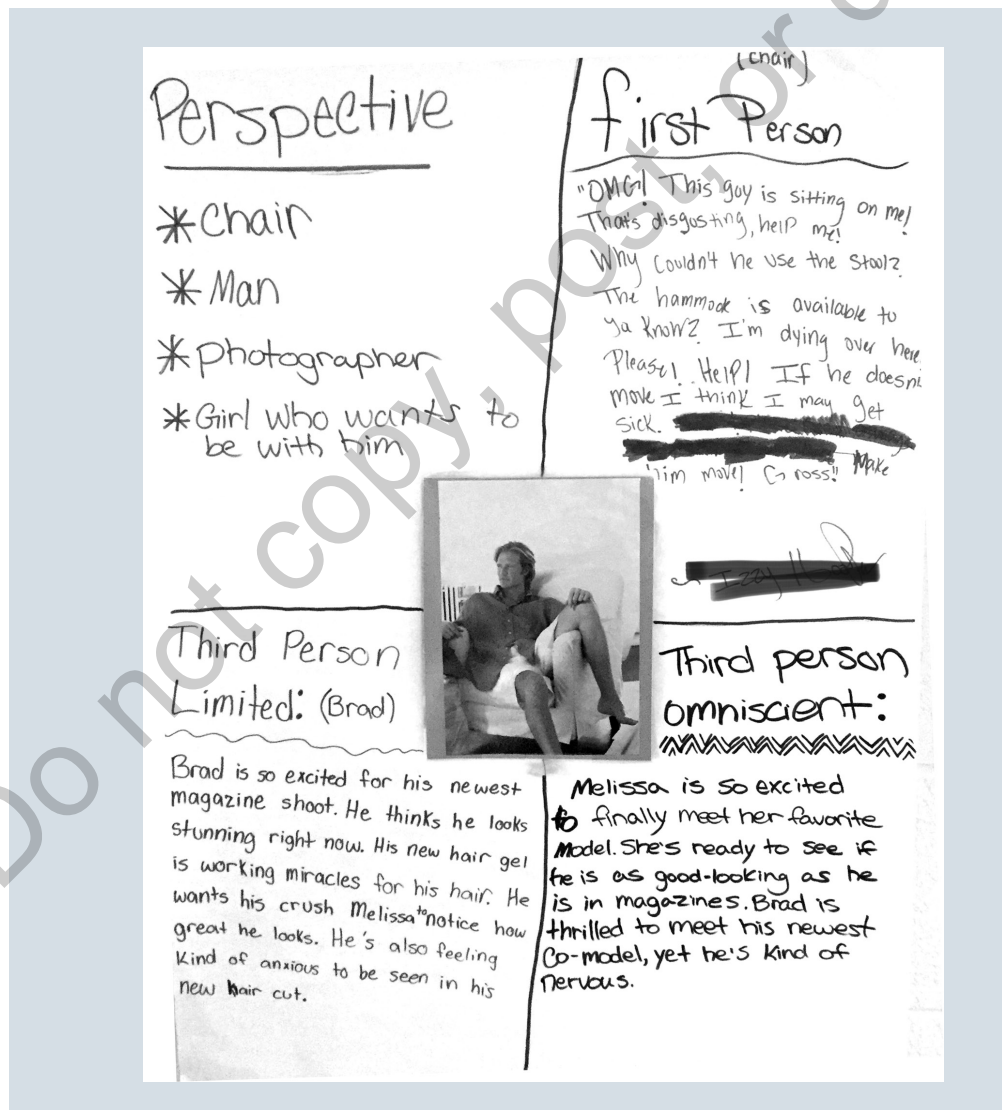 Perspective
* Chair
* Man
* Photographer
* Girl who wants to
be with him
(chair)
first Person
"OMG! This guy is sitting on me!
That's disgusting, help me!
Why couldn't he use the stool?
The hammock is available to
ya know? I'm dying over here.
Please! Help! If he doesn't
move I think I may get
sick.
Make
him move! Gross!!
Third Person
Limited: (Brad)
Brad is so excited for his newest
magazine shoot. He thinks he looks
stunning right now. His new hair gel
is working miracles for his hair. He
wants his crush Melissa to notice how
great he looks. He's also feeling
kind of anxious to be seen in his
new hair cut.
Third person
omniscient:
Melissa is so excited
to finally meet her favorite
Model. She's ready to see if
he is as good-looking as he
is in magazines. Brad is
thrilled to meet his newest
Co-model, yet he's kind of
nervous.
Do not copy, post, or